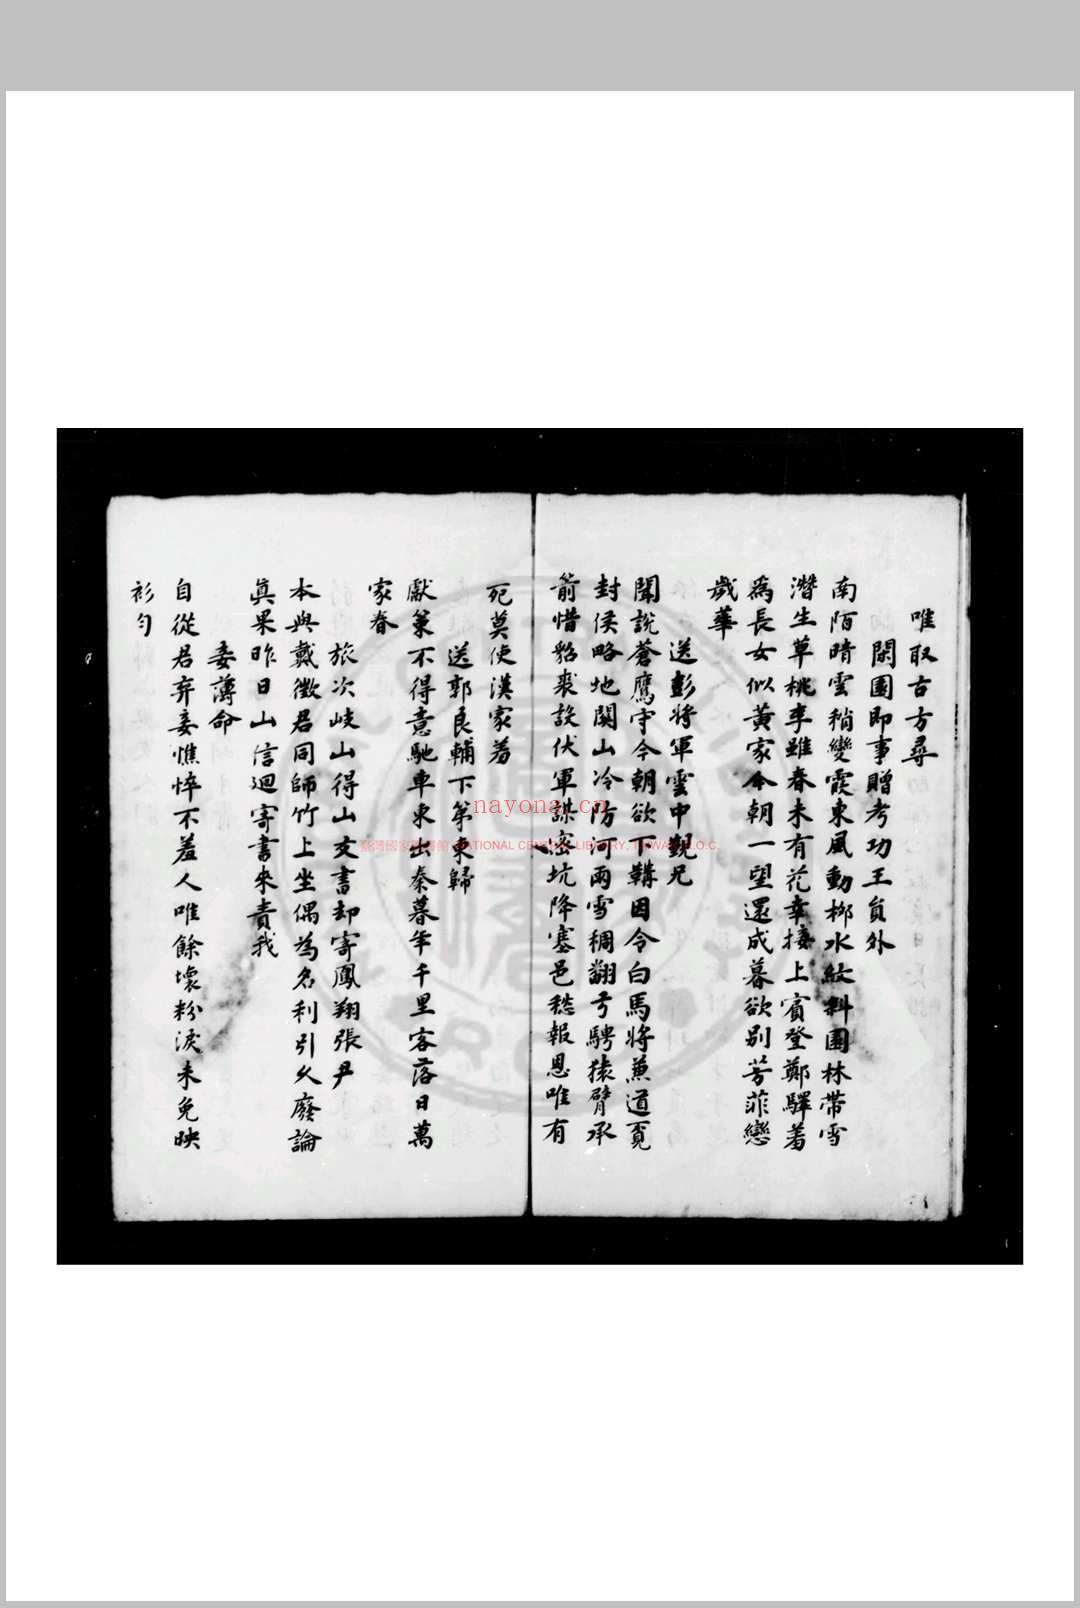 唯取古方尋
閑園即事贈考功王員外
南陌晴雲稍變霞東風動栁水紋斜園林帶雪
潛生草桃李雖春未有花幸接上賓登鄭驛羞
為長女似黃家今朝一望還成暮欲别芳菲戀
歲華
送彭將軍雲中覲兄
聞說蒼鷹守今朝欲下鞲因令白馬將兼道覓
封侯略地關山冷防河雨雪稠翻弓騁猿臂承
箭惜貂裘設伏軍謀密坑降塞邑愁報恩唯有
死莫使漢家羞
送郭良輔下第東歸
獻策不得意馳車東出秦暮年千里客落日萬
家春
旅次岐山得山友書却寄鳳翔張尹
本與戴徵君同師竹上坐偶為名利引久廢論
真果昨日山信迴寄書來責我
妾薄命
自從君弃妾憔悴不羞人唯餘壞粉淚未免映
衫匀
nayona.cn
臺灣國家圖書館 NATIONAL CENTRAL LIBRARY, TAIWAN R.O.C.